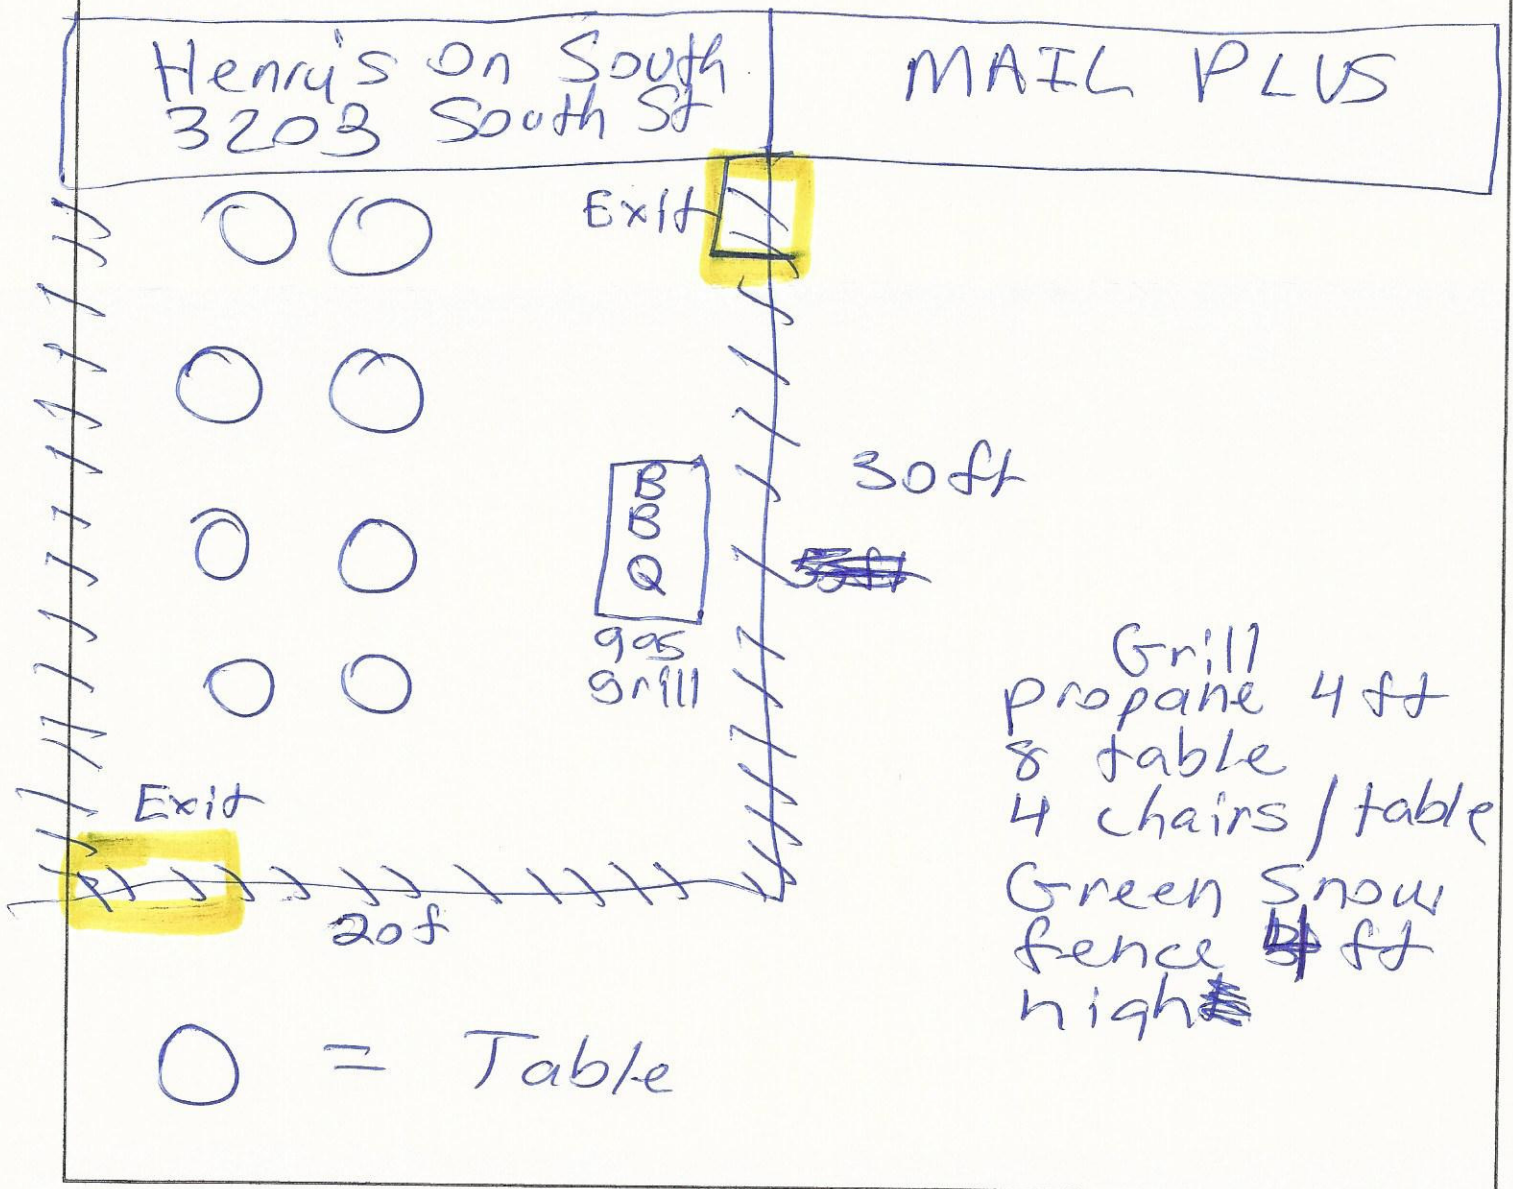 Henry's On South
3203 South St
MAIL PLUS
Exit
30ft
B
B
Q
gas
grill
Grill
propane 4 ft
8 table
4 chairs / table
Green Snow
fence 4 ft
high
Exit
20f
= Table